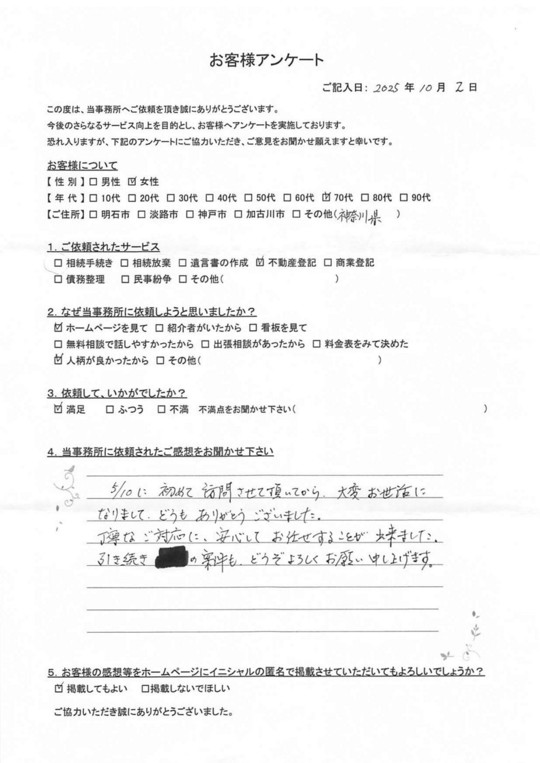 お客様アンケート
ご記入日: 2025 年 10 月 2 日
この度は、当事務所へご依頼を頂き誠にありがとうございます。
今後のさらなるサービス向上を目的とし、お客様へアンケートを実施しております。
恐れ入りますが、下記のアンケートにご協力いただき、ご意見をお聞かせ願えますと幸いです。
お客様について
【 性 別 】 □ 男性 ☑ 女性
【 年 代 】 □ 10代 □ 20代 □ 30代 □ 40代 □ 50代 □ 60代 ☑ 70代 □ 80代 □ 90代
【ご住所】 □ 明石市 □ 淡路市 □ 神戸市 □ 加古川市 □ その他(神奈川県 )
1. ご依頼されたサービス
□ 相続手続き □ 相続放棄 □ 遺言書の作成 ☑ 不動産登記 □ 商業登記
□ 債務整理 □ 民事紛争 □ その他( )
2. なぜ当事務所に依頼しようと思いましたか?
☑ ホームページを見て □ 紹介者がいたから □ 看板を見て
□ 無料相談で話しやすかったから □ 出張相談があったから □ 料金表をみて決めた
☑ 人柄が良かったから □ その他( )
3. 依頼して、いかがでしたか?
☑ 満足 □ ふつう □ 不満 不満点をお聞かせ下さい( )
4. 当事務所に依頼されたご感想をお聞かせ下さい
5/10に 初めて 訪問させて頂いてから、大変 お世話に
なりまして、どうも ありがとう ございました。
丁寧な ご対応に、安心して お任せすることが 出来ました。
引き続き の案件も、どうぞよろしく お願い 申し上げます。
5. お客様の感想等をホームページにイニシャルの匿名で掲載させていただいてもよろしいでしょうか?
☑ 掲載してもよい □掲載しないでほしい
ご協力いただき誠にありがとうございました。